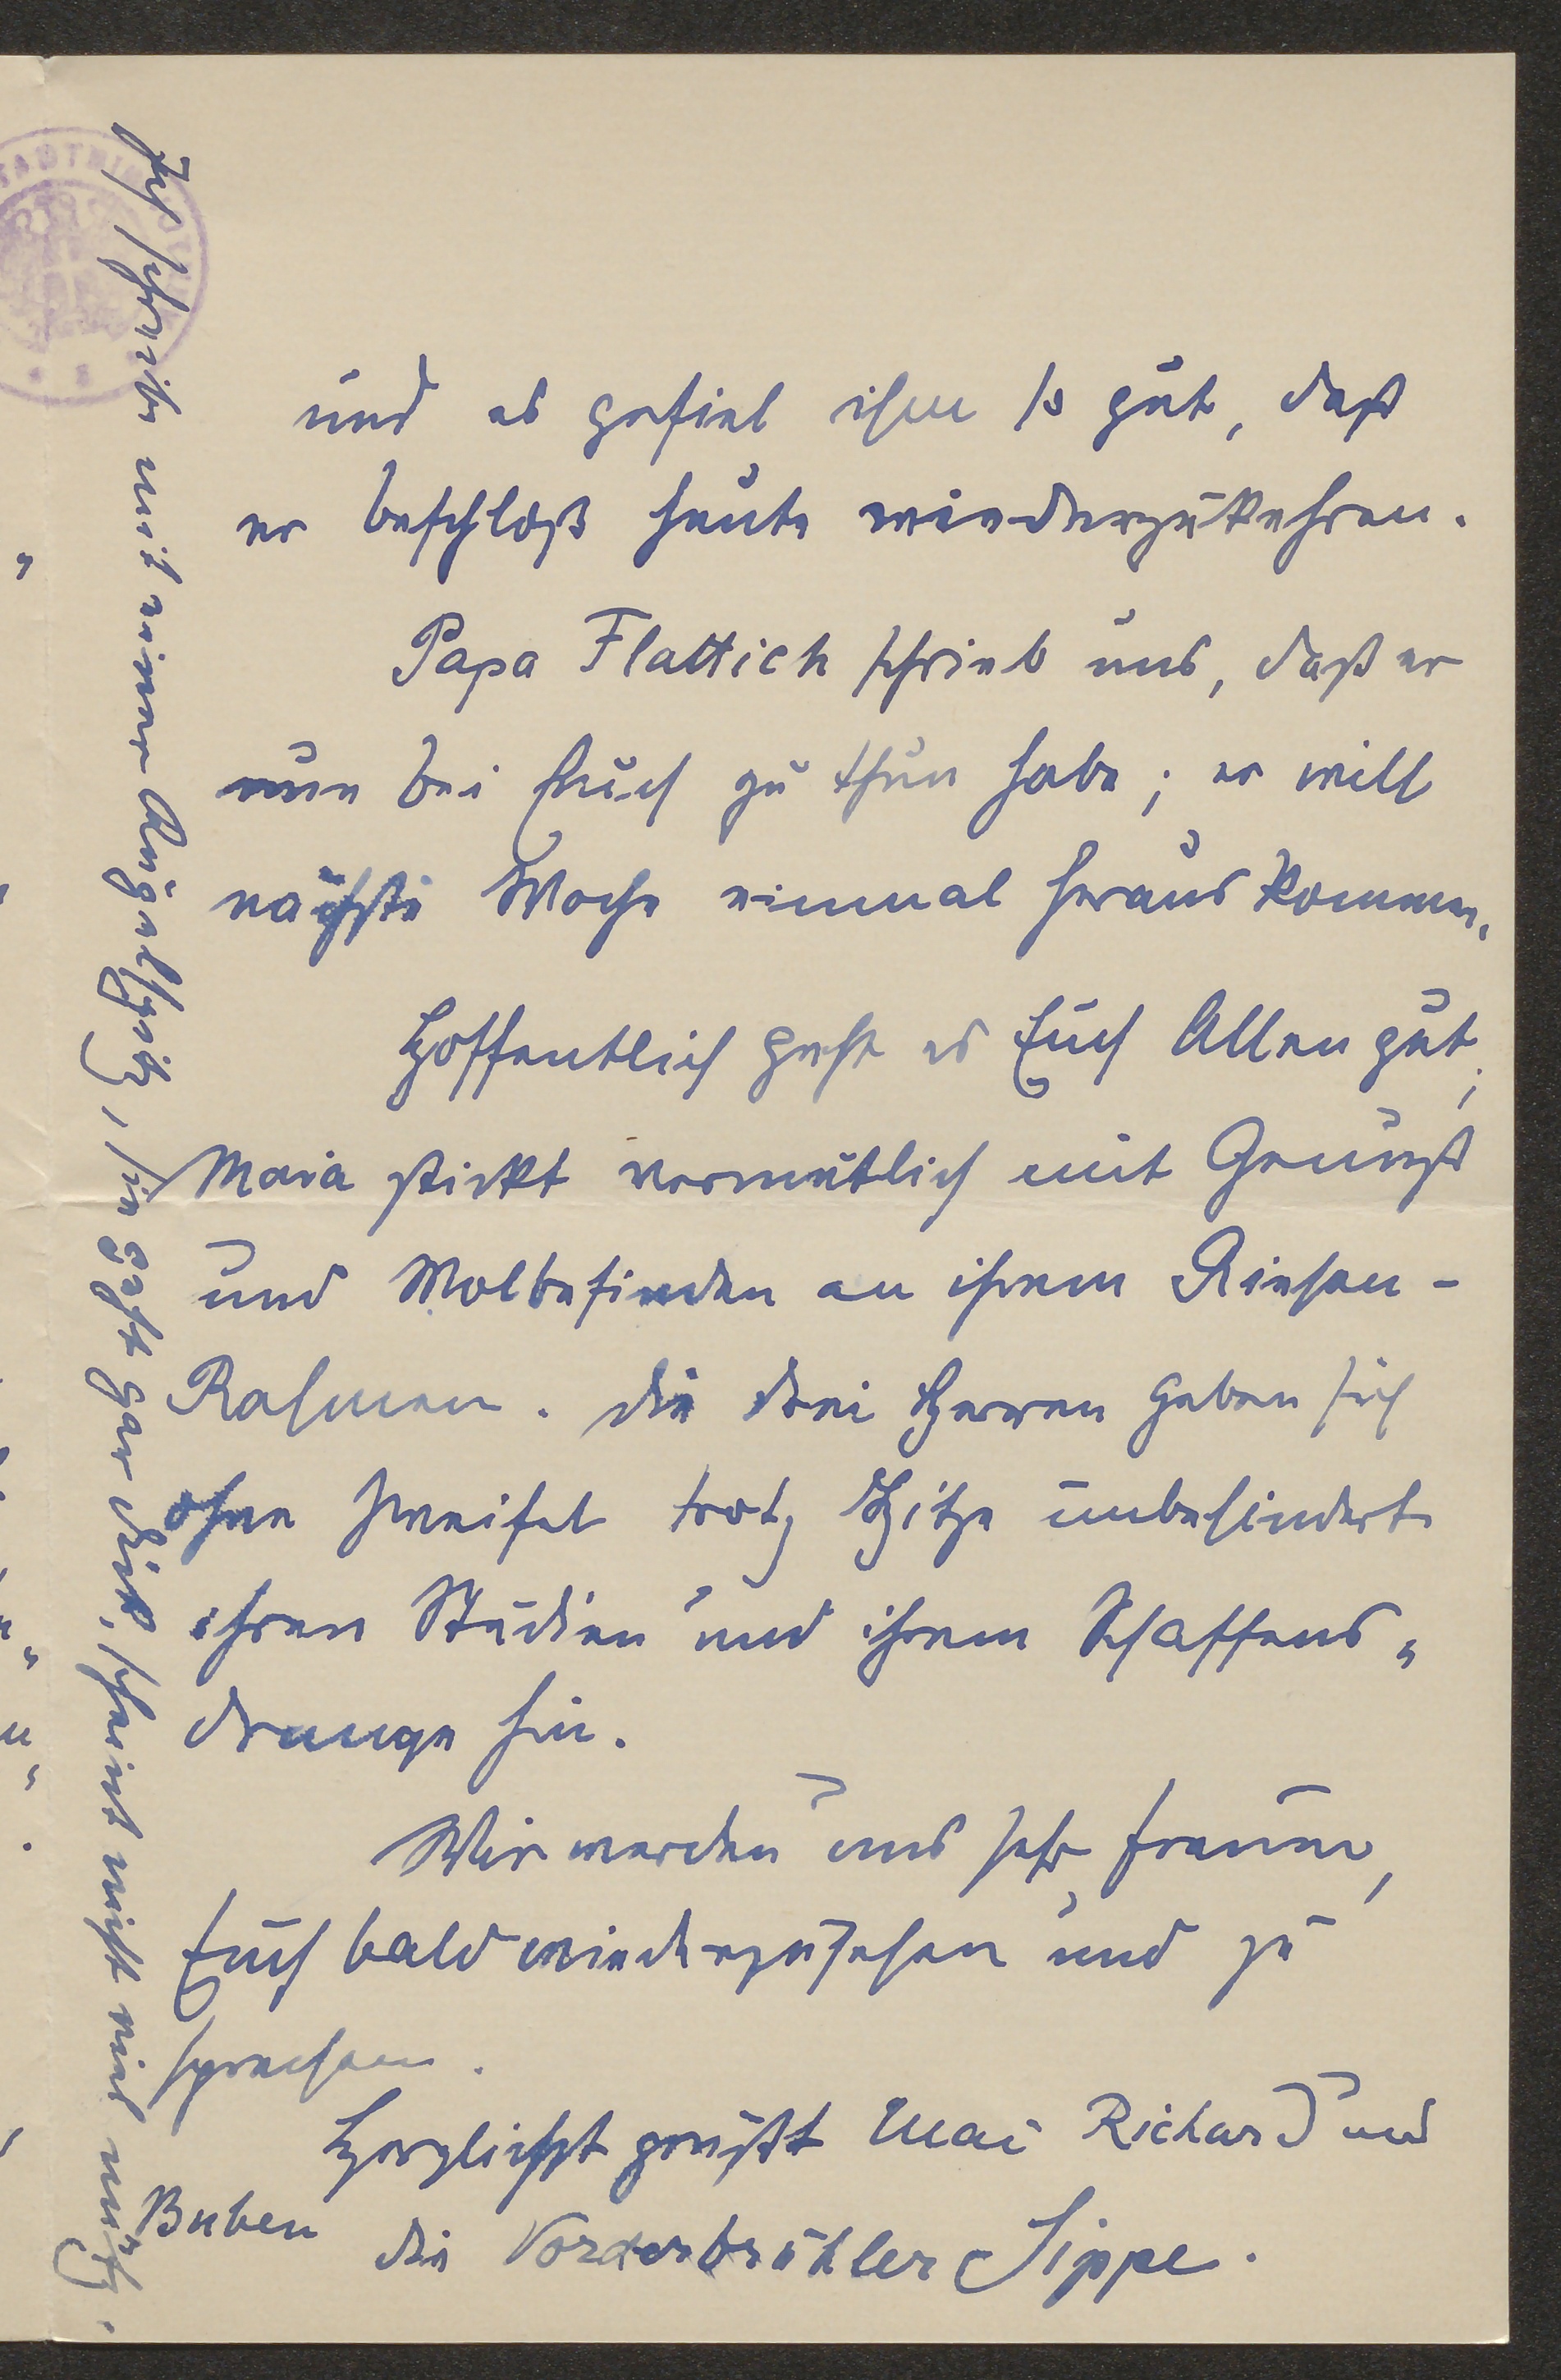 und es gefiel ihm so gut, daß
er beschloß heute wiederzukehren.
Papa Flattich schrieb uns, daß er
nun bei Euch zu thun habe; er will
nächste Woche einmal herauskommen.
Hoffentlich geht es Euch Allen gut;
Maia stickt vermutlich mit Genuß
und Wolbefinden an ihrem Riesen-
Rahmen. Die drei Herren geben sich
ohne Zweifel trotz Hitze unbehindert
ihren Studien und ihrem Schaffens„
drange hin.
Wir werden uns sehr freuen,
Euch bald wiederzusehen und zu
sprechen.
Herzlichst grüßt Mai Richard und
Buben die Vorderbrühler Sippe.
Ich schreibe mit einer Kugelspitz, sie geht gar dick, scheint nicht viel nütz.